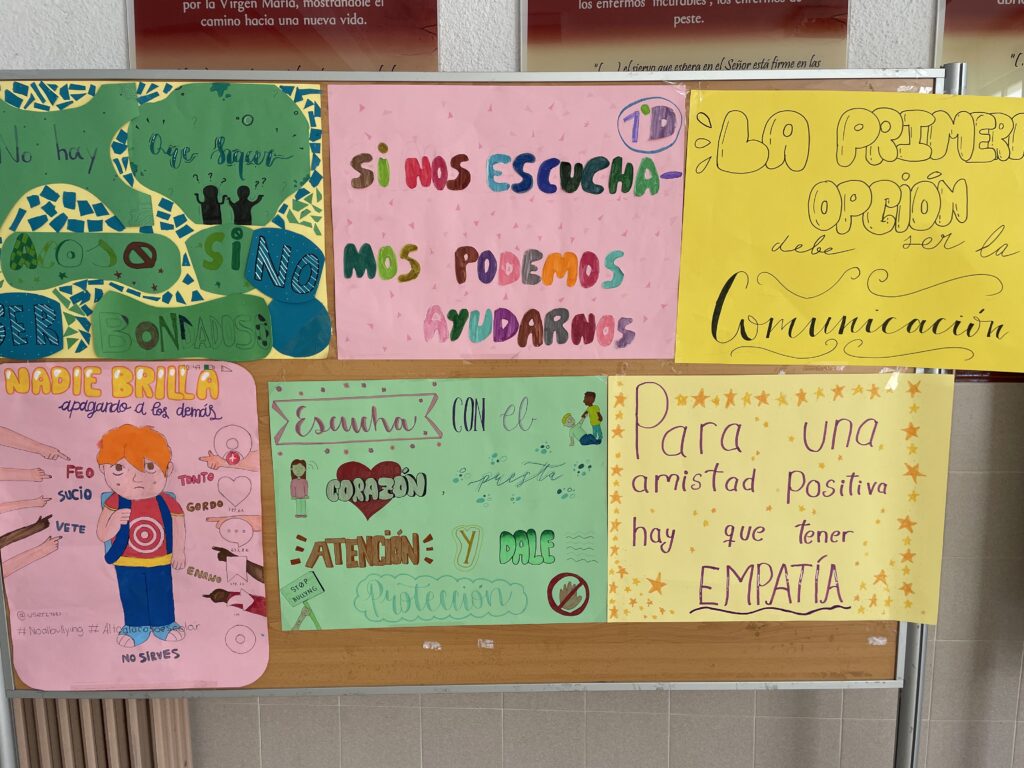 por la Virgen María, mostrándole el
camino hacia una nueva vida.
los enfermos "incurables", los enfermos de
peste.
"(...) el siervo que espera en el Señor está firme en las
"(..
No hay
Que hacer
ACOSO SI NO
SER BONDADOSO
1ºD
SI NOS ESCUCHA-
MOS PODEMOS
AYUDARNOS
LA PRIMERA
OPCIÓN
debe ser la
Comunicación
NADIE BRILLA
apagando a los demás
FEO
SUCIO
VETE
TONTO
GORDO
ENANO
#Noalbullying #Altoalacosoescolar
NO SIRVES
Escucha CON el
CORAZÓN, presta
ATENCIÓN Y DALE
Protección
STOP
BULLYING
Para una
amistad Positiva
hay que tener
EMPATÍA